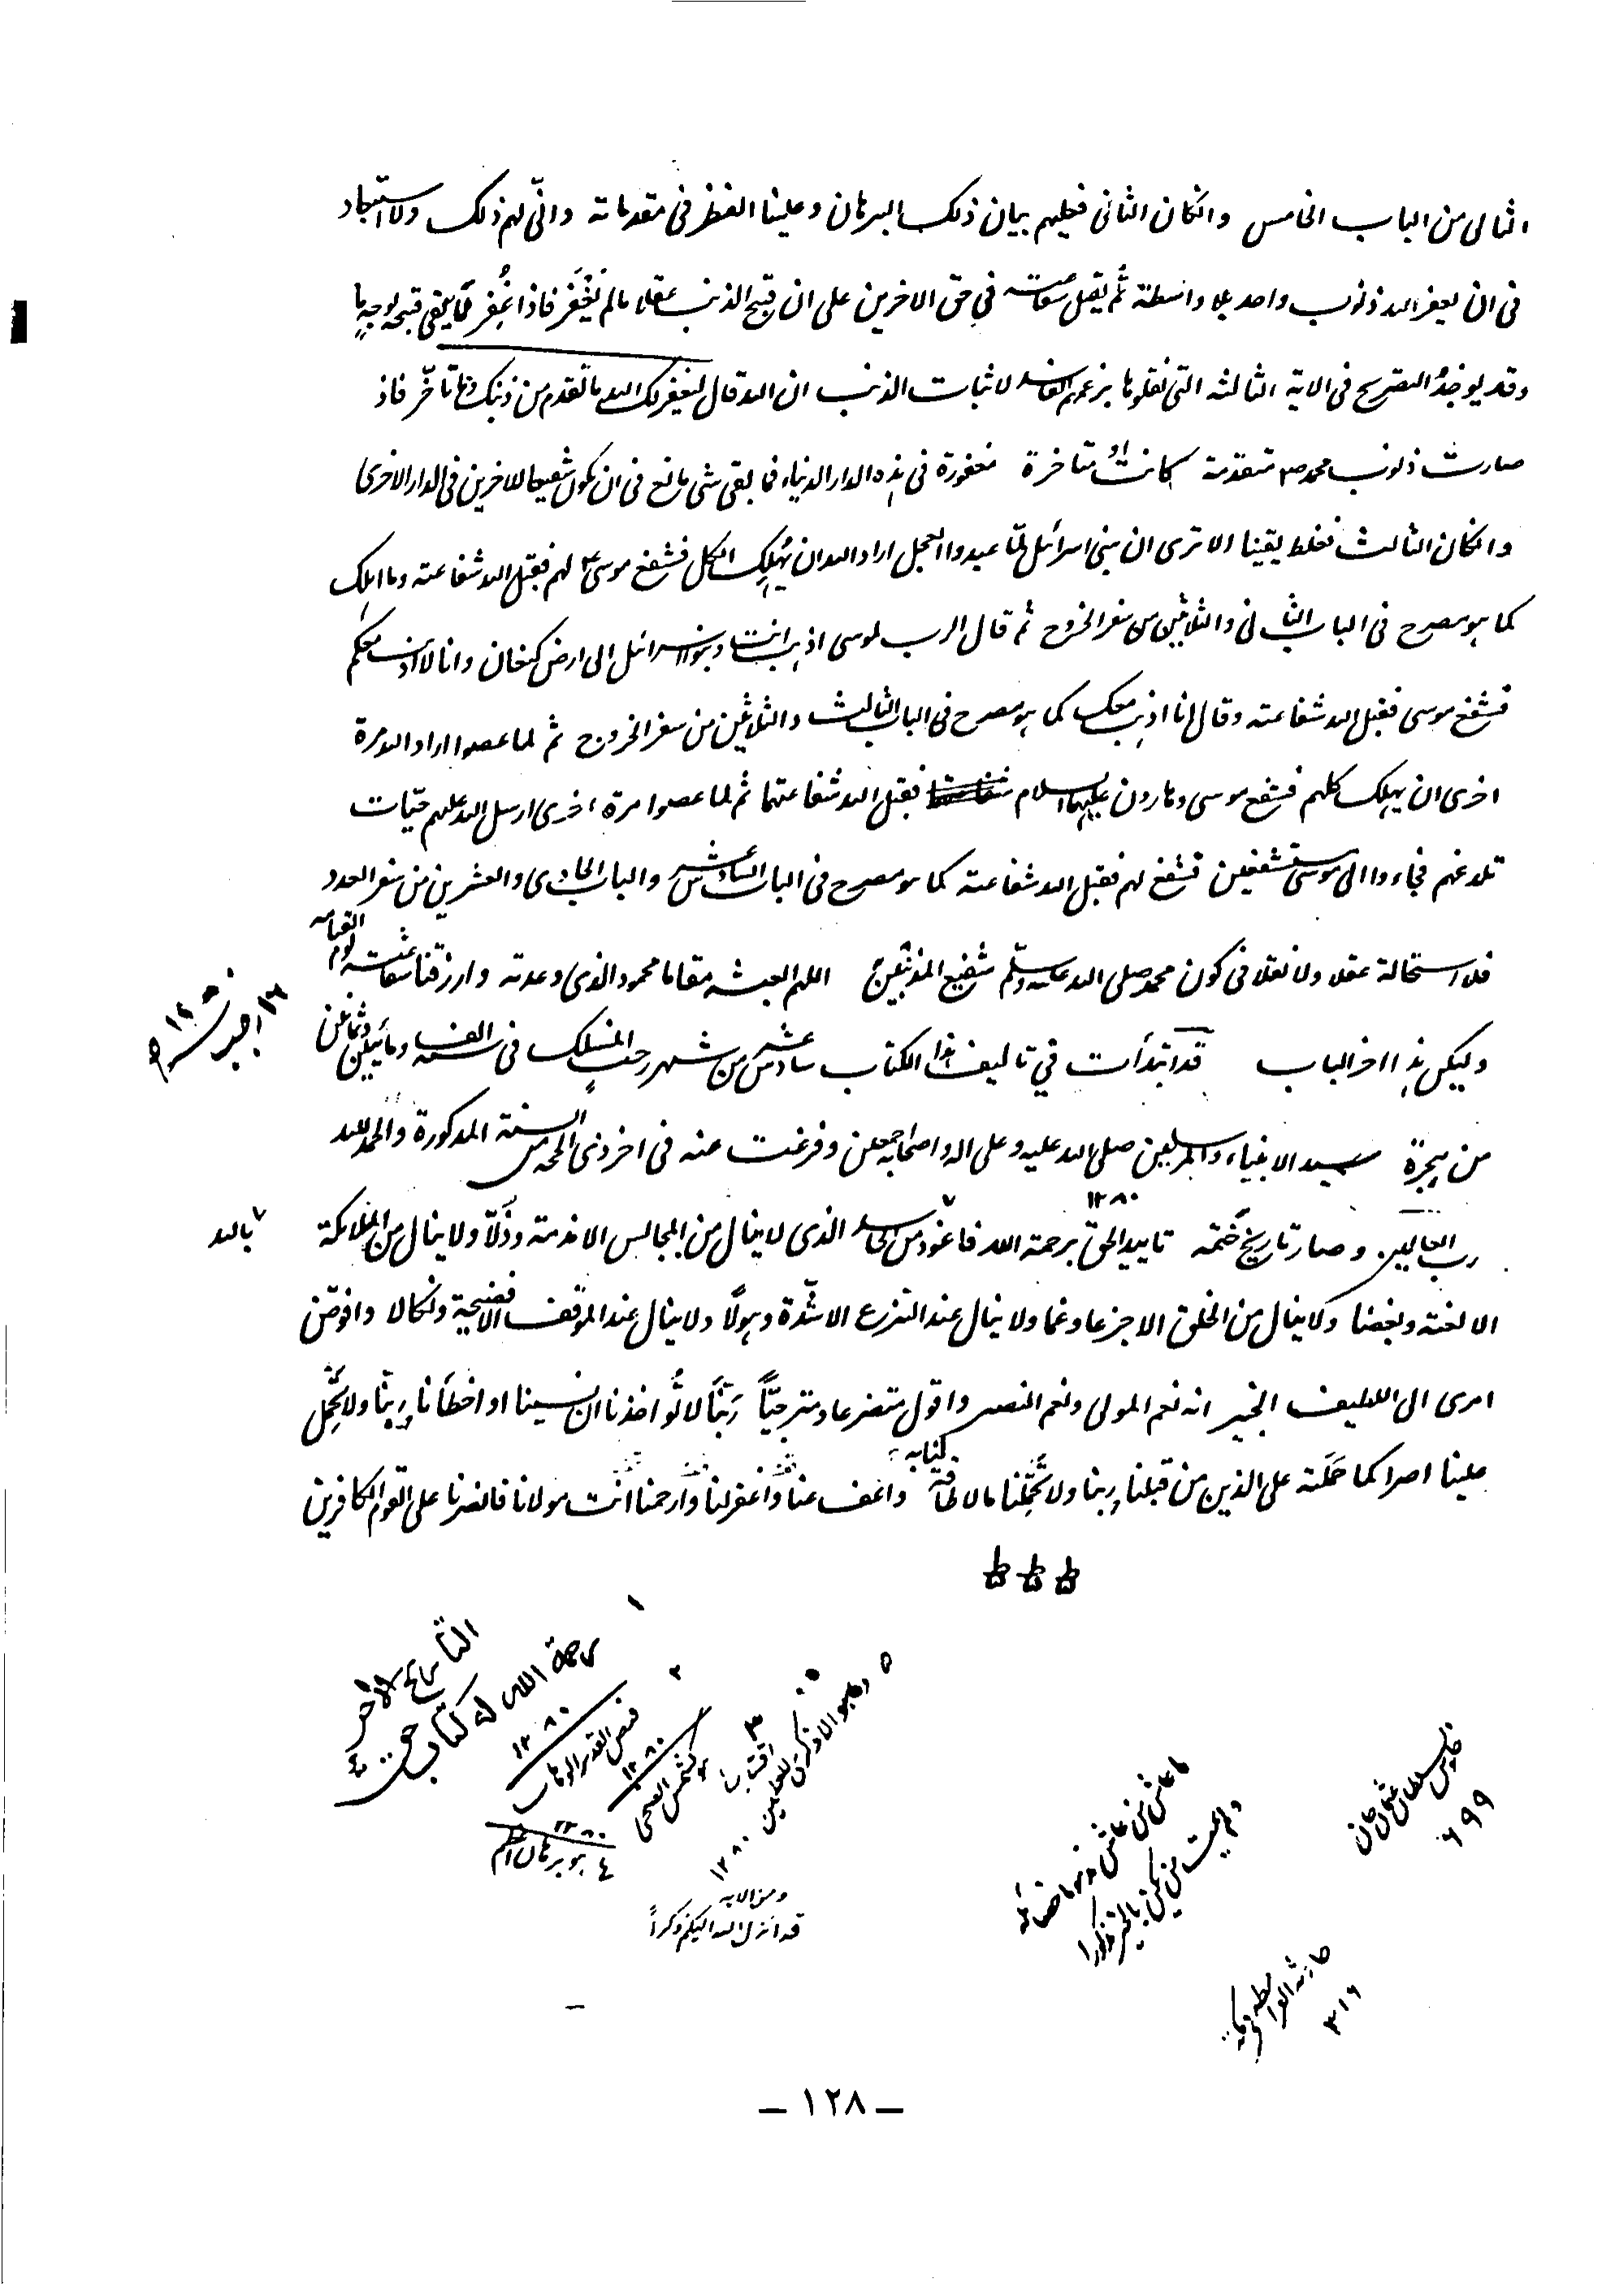 الثالث من الباب الخامس وانكان الثانى فعليهم بيان ذلك البرهان وعلينا النظر فى مقدماته وانّى لهم ذلك ولا استبعاد
فى ان يغفر الله ذنوب واحد بلا واسطة ثُم يقبل شفاعته فى حق الاخرين على ان قبح الذنب عقلا مالم يُغْفَر فاذا غُفِر لا يبقى قبحه لوجهٍ ما
وقد يوجدُ التصريح فى الاية الثالثة التى نقلوها بزعمهم الفاسد لاثبات الذنب ان الله قال ليغفر لك الله ماتقدم من ذنبك وما تاخّر فاذ
صارت ذنوب محمد ص متقدمة كانت او متاخرة مغفورة فى هذه الدار الدنيا، فما بقى شى مانع فى ان يكون شفيعا للاخرين فى الدار الاخرى
وانكان الثالث فغلط يقينا الا ترى ان بنى اسرائل لمّا عبدوا العجل اراد الله ان يُهلِك الكل فشفع موسى ع لهم فقبل الله شفاعته وما اهلك
كما هو مصرح فى الباب الثانى والثلاثين من سفر الخروج ثم قال الرب لموسى اذهب انت وبنو اسرائل الى ارض كنعان وانا لا اذهب معكم
فشفع موسى فقبل الله شفاعته وقال انا اذهب معك كما هو مصرح فى الباب الثالث والثلاثين من سفر الخروج ثم لما عصوا اراد الله مرة
اخرى ان يهلك كلهم فشفع موسى وهارون عليهما السلام فقبل الله شفاعتهما ثم لما عصوا مرة اخرى ارسل الله عليهم حيّات
تلدغهم فجاءوا الى موسى مستشفعين فشفع لهم فقبل الله شفاعته كما هو مصرح فى الباب السادس عشر والباب الحادى والعشرين من سفر العدد
فلا استحالة عقلا ولا نقلا فى كون محمد صلى الله عليه وسلّم شفيع المذنبين اللهم ابعثه مقاما محمود الذى وعدته وارزقنا شفاعته يوم القيامه
وليكن هذا اخر الباب قد ابتدأت في تاليف هذا الكتاب سادس عشر من شهر رجب المنسلك فى سنة الف ومأيتين وثمانين
من هجرة سيد الانبياء والمرسلين صلى الله عليه وعلى اله واصحابه اجمعين وفرغت عنه فى اخر ذى الحجه من السنة المذكورة والحمد لله
رب العالمين وصار تاريخ ختمه تاييد الحق برحمة الله ١٢٨٠ فاعوذ من الحاسد الذى لا ينال من المجالس الا مذمة وذُلّاً ولا ينال من الملائكة
بالله
الا لعنة وبغضا ولا ينال من الخلق الا جزعا وغما ولا ينال عند النزع الا شدّة وهولًا ولا ينال عند الموقف الا فضيحة ونكالا وافوّض
امرى الى اللطيف الخبير انه نعم المولى ونعم النصير واقول متضرعا ومترجيّاً رَبّنَا لا تُواخذنا ان نسينا او اخطأنا ربنا ولا تَحْمِل
علينا اصرا كما حَمَلتَه على الذين من قبلنا ربنا ولا تُحمّلنا مالا طاقة لنا به واعف عنا واغفر لنا وارحمنا انت مولانا فانصرنا على القوم الكافرين
التأريخ الاخر
١
رحمة الله له كتاب حق
٢
١٢٨٠
فيض القدير الوهاب
٣
١٢٨٠
كشمس الضحى
١٢٨٠
٤ هو برهان اعظم
٥
وما هو الا ذكر للعالمين
١٢٨٠
ومن الايه
قد انزل الله اليكم ذكراً
ما عاش من عاش مذموما خصائله
ولم يمت من يكن بالخير مذكورا
جلوس سلطان عثمان خان
٦٩٩
٣١٦
– ١٢٨ –